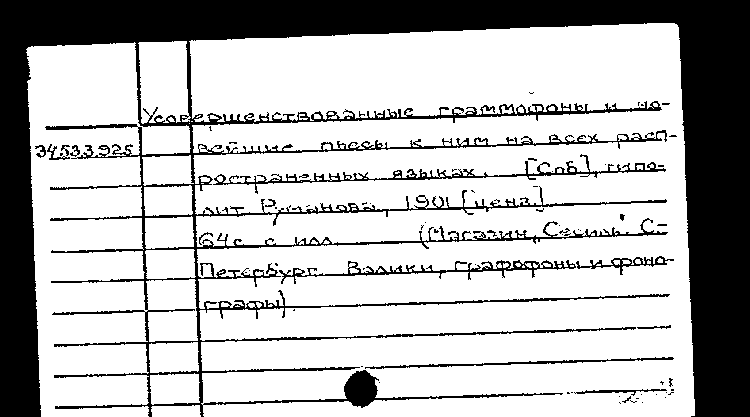 Усовершенствованные граммофоны и но-
34533.925 вейшие пьесы к ним на всех расп-
ространенных языках. [Спб], типо-
лит Руманова, 1901 [ценз.]
64с с илл. (Магазин „Сесиль". С-
Петербург. Валики, графофоны и фоно-
графы).